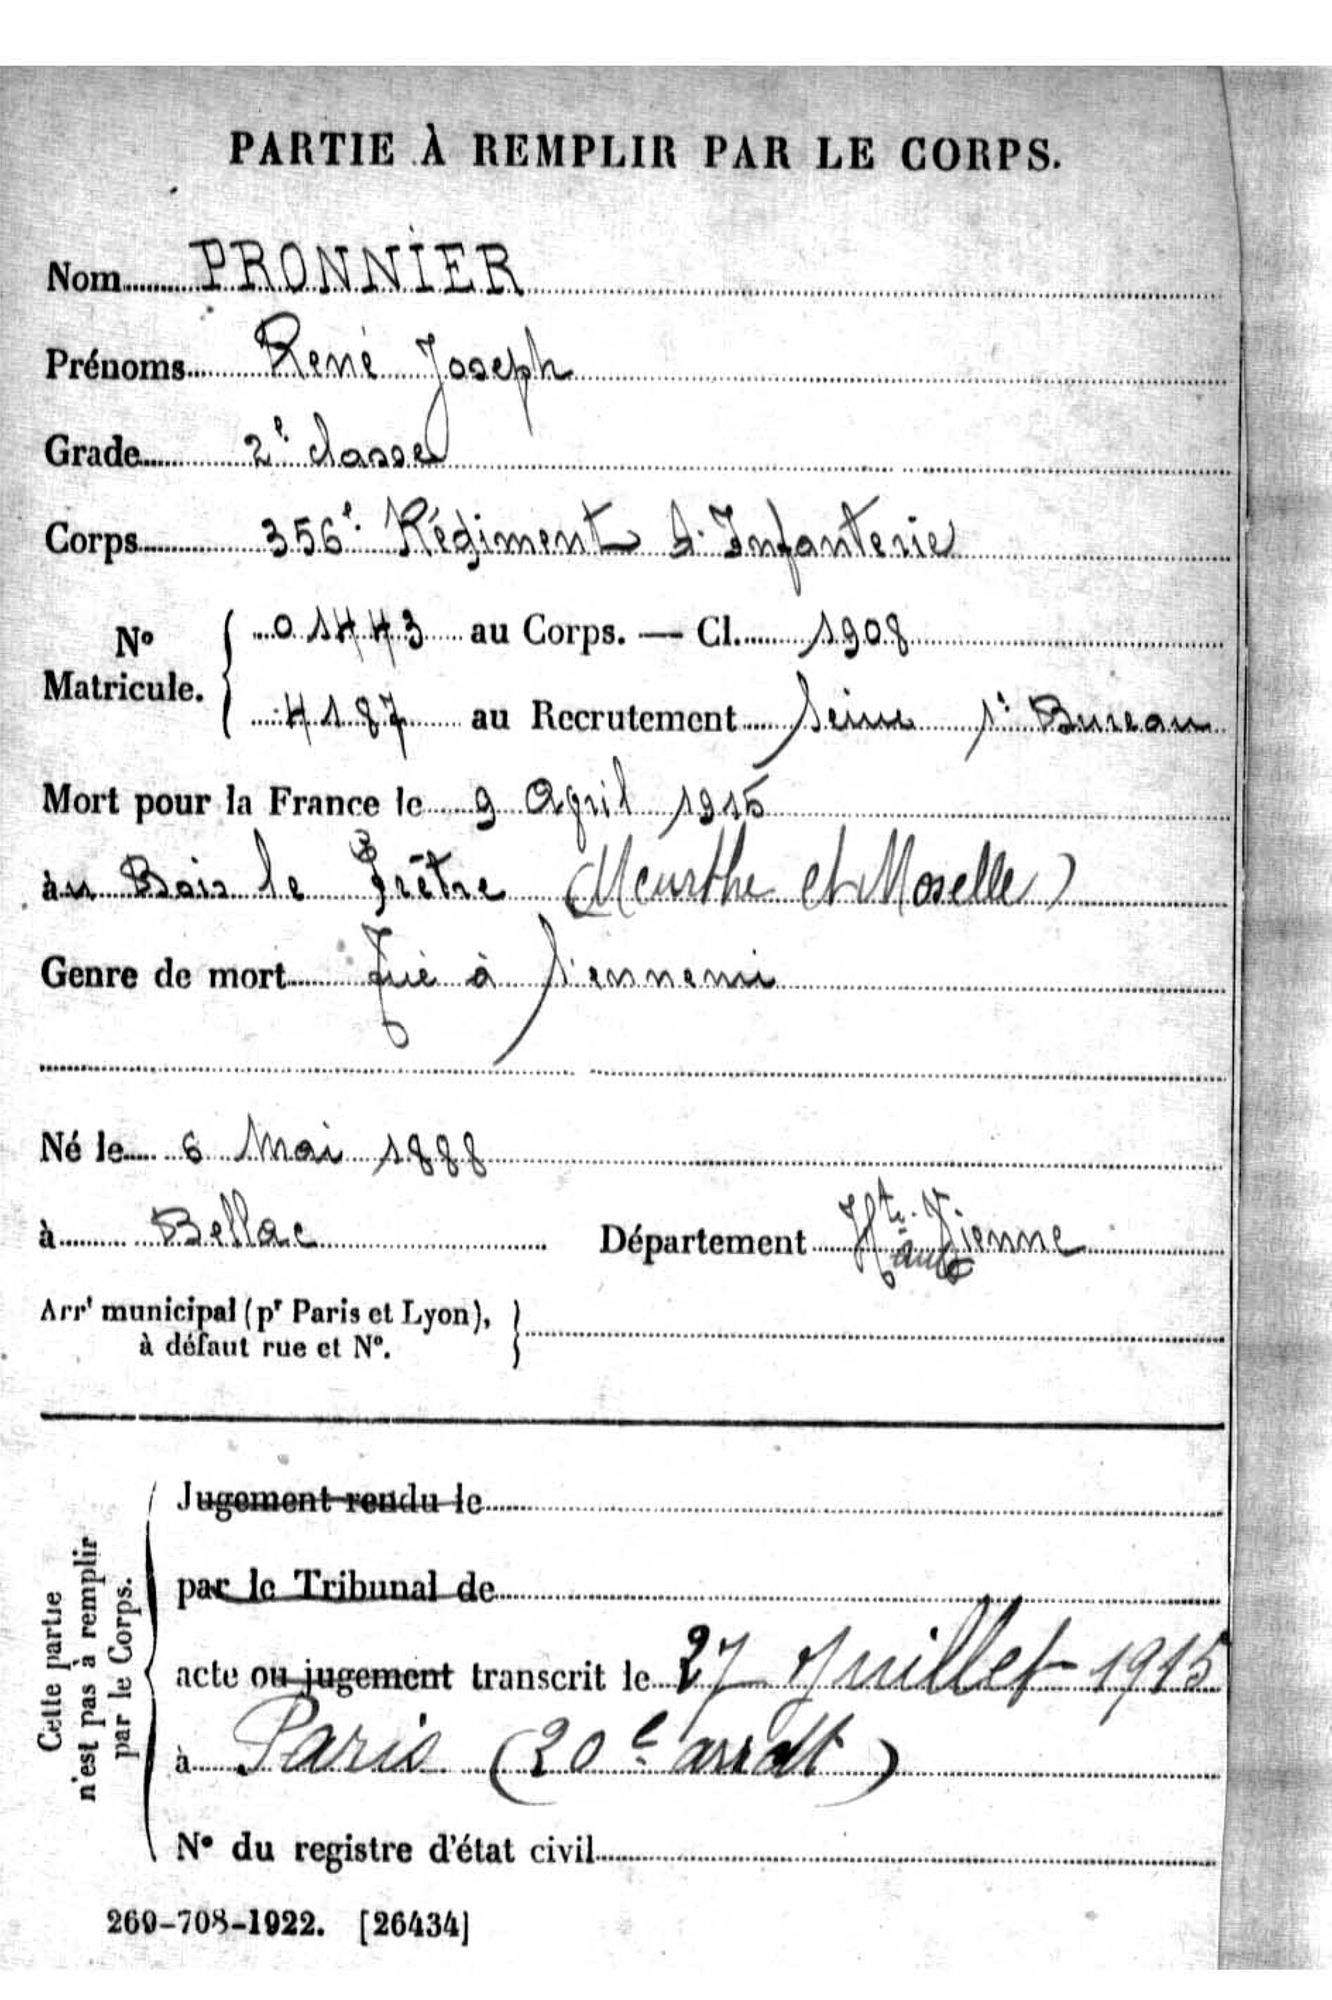 PARTIE À REMPLIR PAR LE CORPS.
Nom PRONNIER
Prénoms René Joseph
Grade 2e classe
Corps 356e Régiment d'Infanterie
No Matricule. { 01443 au Corps. — Cl. 1908
4187 au Recrutement Seine 1r Bureau
Mort pour la France le 9 Avril 1915
au Bois le Prêtre (Meurthe et Moselle)
Genre de mort Tué à l'ennemi
Né le 6 Mai 1888
à Bellac Département Hte Vienne
Arrt municipal (pr Paris et Lyon),
à défaut rue et No.
Cette partie
n'est pas à remplir
par le Corps.
Jugement rendu le
par le Tribunal de
acte ou jugement transcrit le 27 Juillet 1915
à Paris (20e arrdt)
No du registre d'état civil
269-708-1922. [26434]